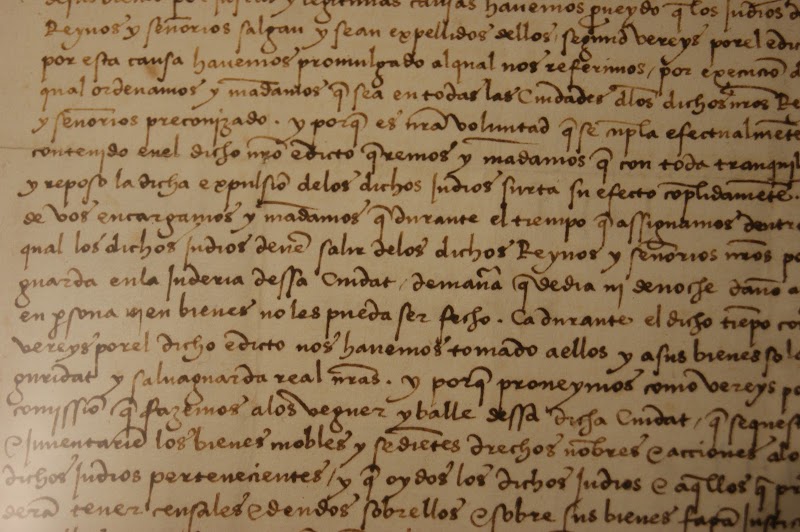 por justas y legitimas causas havemos proueydo q̃ los Judios d
Reynos y señorios salgan y sean expellidos dellos, segund vereys por el edic
por esta causa havemos promulgado al qual nos referimos, por execucio d
qual ordenamos y mãdamos q̃ sea en todas las Ciudades dlos dichos nr̃os Re
y señorios preconizado. y porq̃ es nr̃a voluntad q̃ se cũpla efectualmẽte
contenido en el dicho nr̃o edicto q̃remos y mãdamos q̃ con toda tranquil
y reposo la dicha expulsiõ delos dichos Judios surta su efecto cõplidamẽte.
de vos encargamos y mãdamos q̃ durante el tiempo q̃ assignamos dentro
qual los dichos Judios devẽ salir delos dichos Reynos y señorios nr̃os po
guarda en la Juderia dessa Ciudat, de manãa que de dia ni de noche daño a
en p̃sona ni en bienes no les pueda ser fecho. Ca durante el dicho tiẽpo co
vereys por el dicho edicto nos havemos tomado a ellos y a sus bienes so la
guridat y salvaguarda real nr̃as. y porq̃ proueymos como vereys po
comissiõ q̃ fazemos alos veguer y balle dessa dicha Ciudat, q̃ seques
& Inventarie los bienes mobles y sediẽtes drechos nõbres & acciones alo
dichos Judios pertenecientes, y q̃ oydos los dichos Judios & aq̃llos q̃ pr
derã tener censales & deudos sobrellos & sobre sus bienes fagã Justi